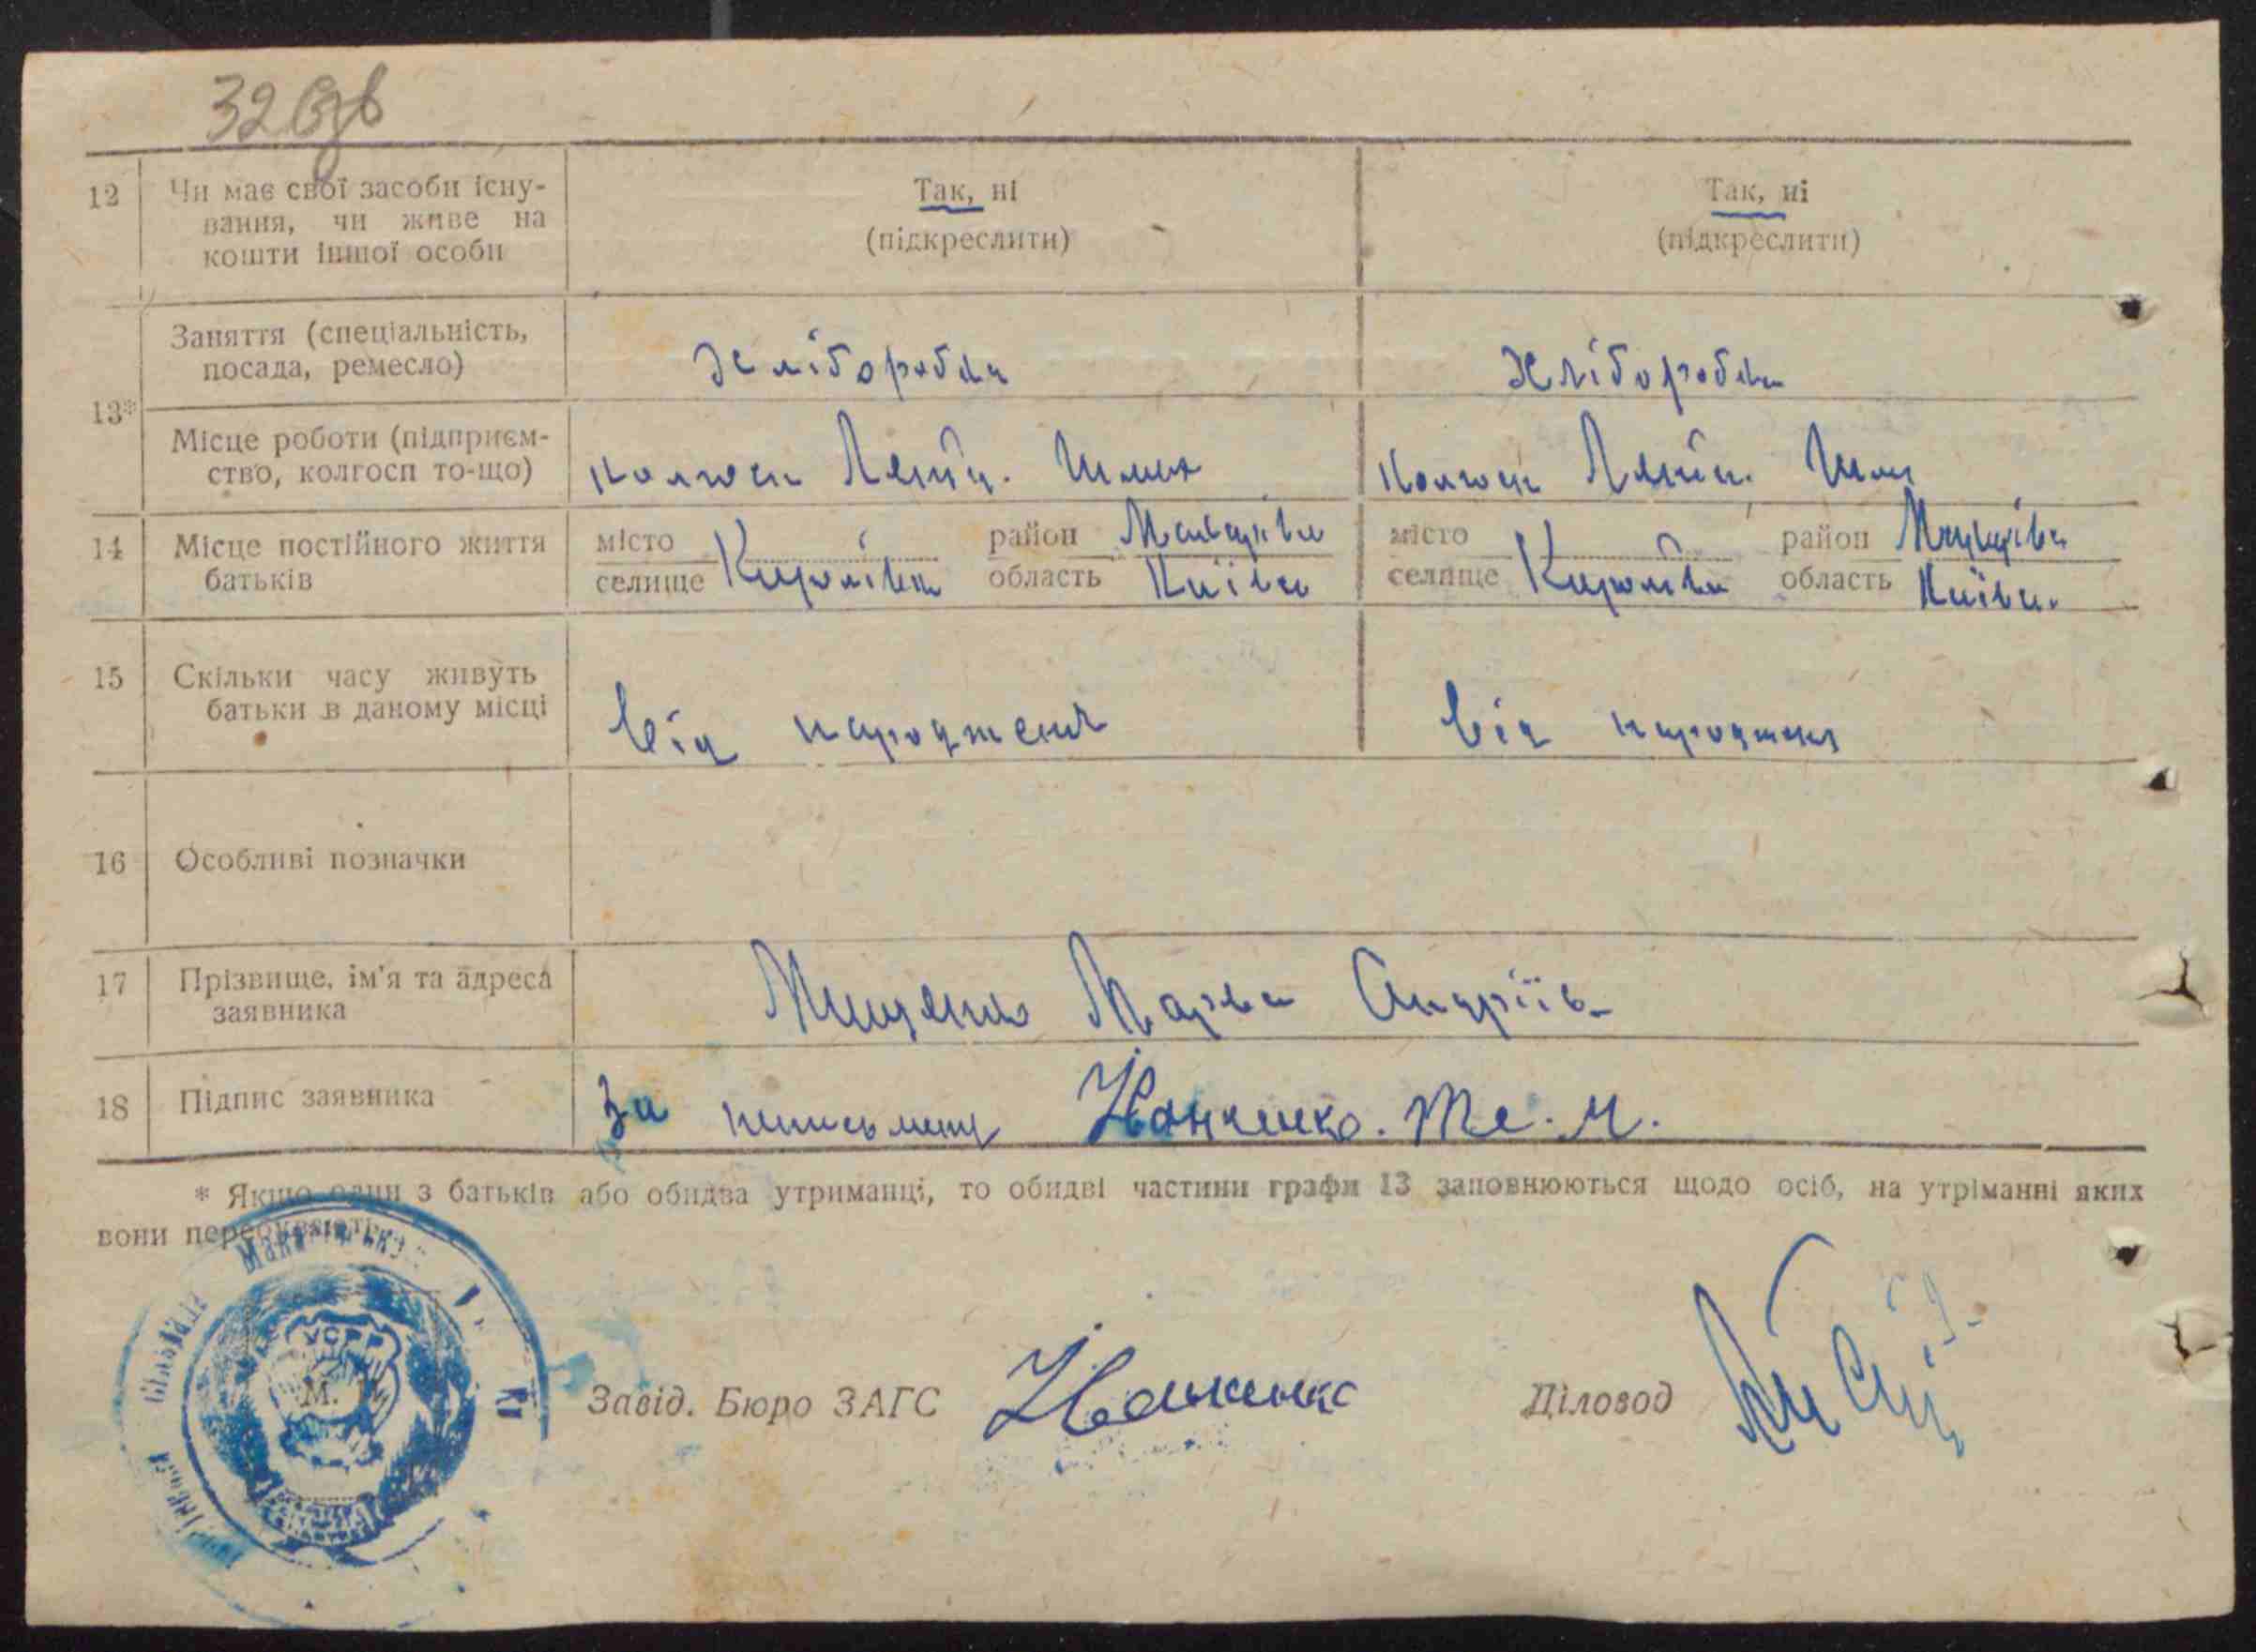 32 зв
12 Чи має свої засоби існу-
вання, чи живе на
кошти іншої особи
Так, ні
(підкреслити)
Так, ні
(підкреслити)
13*
Заняття (спеціальність,
посада, ремесло)
Хлібороб
Хлібороб
Місце роботи (підприєм-
ство, колгосп то-що)
колгосп Ленін. Шлях
колгосп Ленін. Шлях
14 Місце постійного життя
батьків
місто
селище
район Макарів
область Київ
місто
селище
район Макарів
область Київ.
15 Скільки часу живуть
батьки в даному місці
від народження
від народження
16 Особливі позначки
17 Прізвище, ім'я та адреса
заявника
Мищенко Марва Андріїв
18 Підпис заявника
За
* Якщо один з батьків або обидва утриманці, то обидві частини графи 13 заповнюються щодо осіб, на утріманні яких
вони перебувають.
УСРР
М.
Завід. Бюро ЗАГС
Діловод